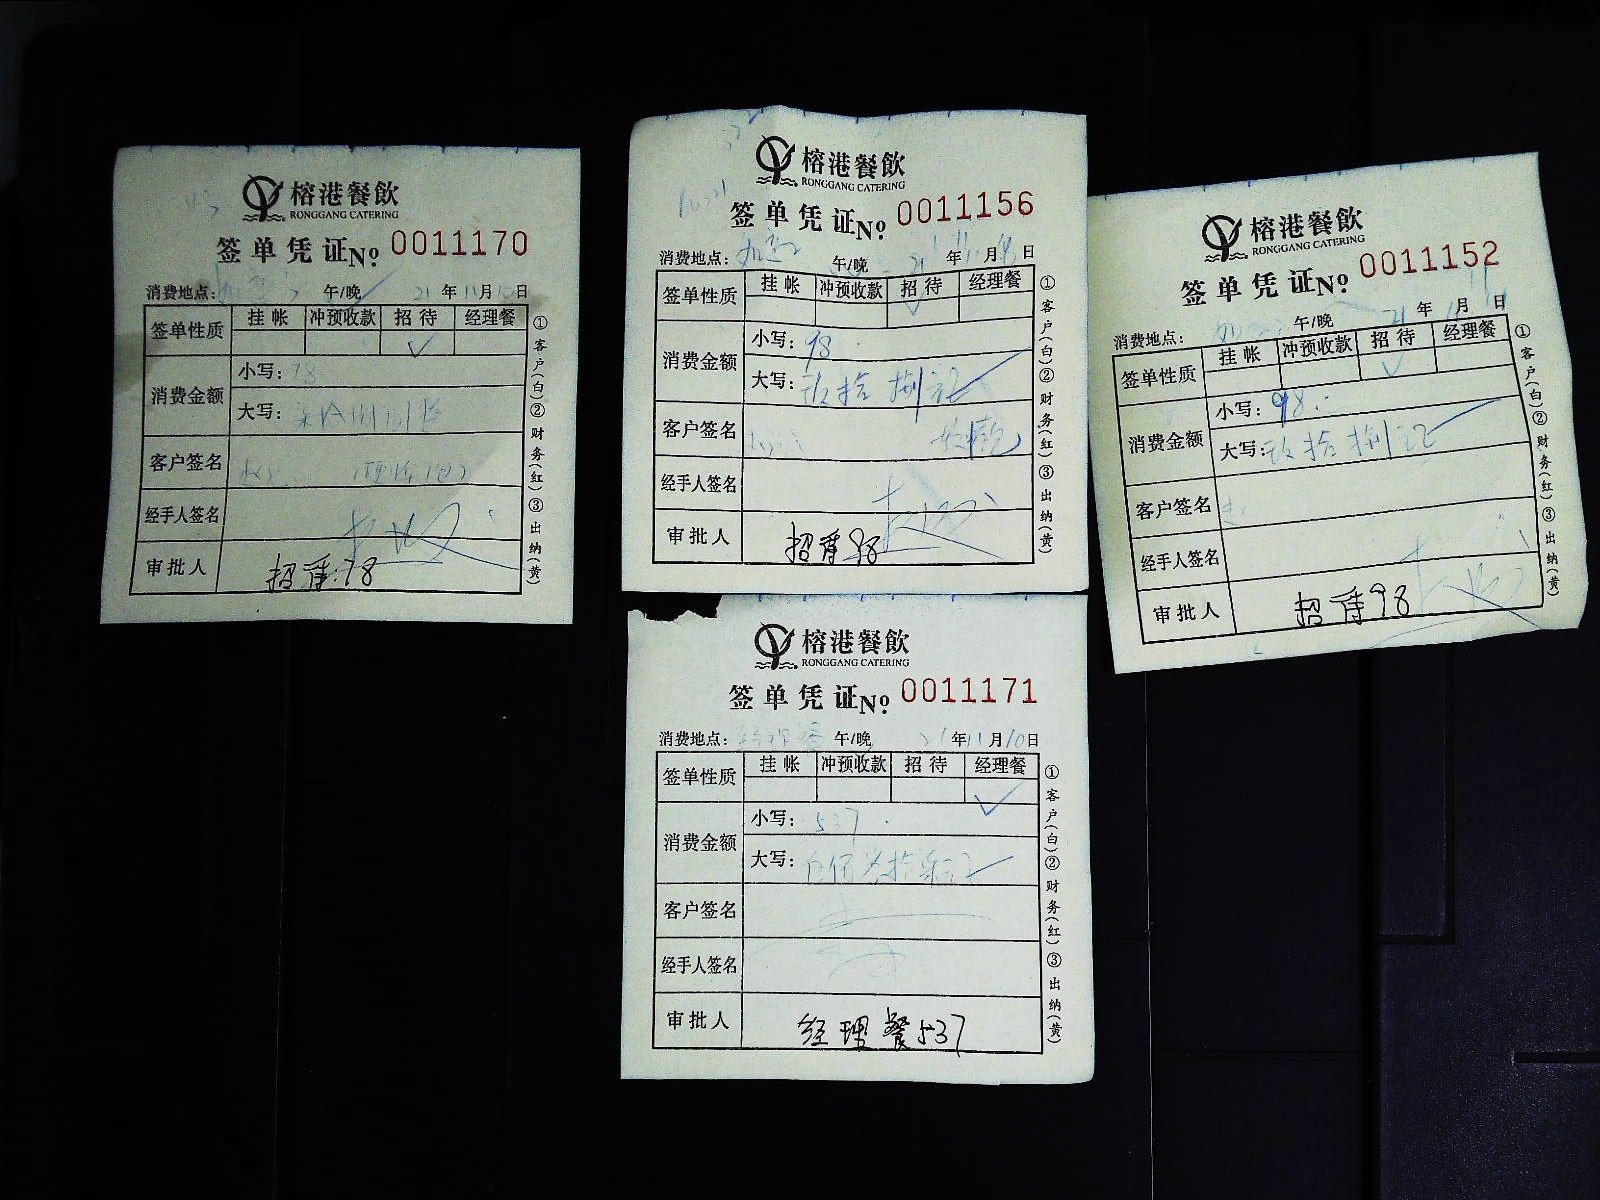 榕港餐飲
RONGGANG CATERING
签单凭证 No. 0011170
消费地点： 午/晚 21年11月10日
签单性质 挂帐 冲预收款 招待 经理餐
✓
消费金额 小写：78
大写：柒拾捌
客户签名
经手人签名
审批人 招待78
①客户(白)②财务(红)③出纳(黄)
榕港餐飲
RONGGANG CATERING
签单凭证 No. 0011156
消费地点： 午/晚 21年11月8日
签单性质 挂帐 冲预收款 招待 经理餐
✓
消费金额 小写：98
大写：玖拾捌元
客户签名
经手人签名
审批人 招待98
①客户(白)②财务(红)③出纳(黄)
榕港餐飲
RONGGANG CATERING
签单凭证 No. 0011152
消费地点： 午/晚 21年11月 日
签单性质 挂帐 冲预收款 招待 经理餐
✓
消费金额 小写：98
大写：玖拾捌元
客户签名
经手人签名
审批人 招待98
①客户(白)②财务(红)③出纳(黄)
榕港餐飲
RONGGANG CATERING
签单凭证 No. 0011171
消费地点：经理餐 午/晚 21年11月10日
签单性质 挂帐 冲预收款 招待 经理餐
✓
消费金额 小写：537
大写：伍佰叁拾柒元
客户签名
经手人签名
审批人 经理餐537
①客户(白)②财务(红)③出纳(黄)